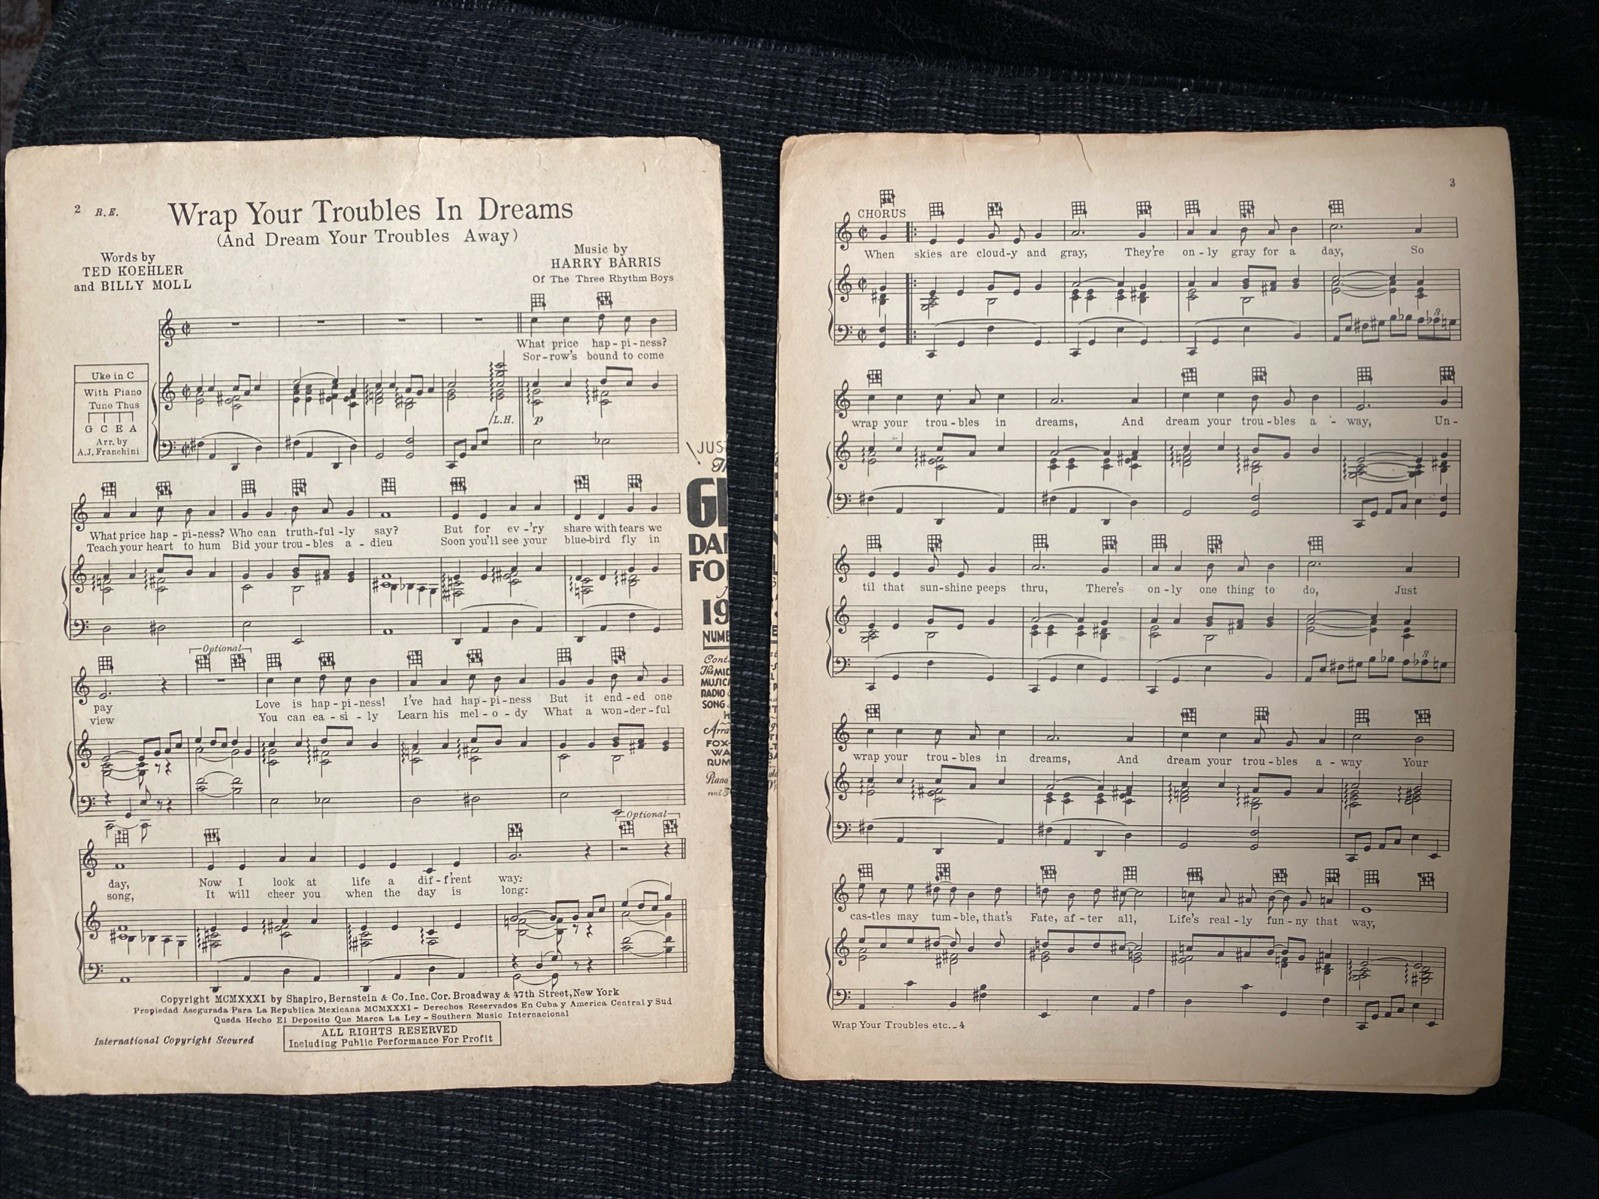 2 R.E. Wrap Your Troubles In Dreams
(And Dream Your Troubles Away)
Words by
TED KOEHLER
and BILLY MOLL
Music by
HARRY BARRIS
Of The Three Rhythm Boys
What price hap-pi-ness?
Sor-row's bound to come
Uke in C
With Piano
Tune Thus
G C E A
Arr. by
A.J. Franchini
L.H.
p
What price hap-pi-ness? Who can truth-ful-ly say? But for ev-'ry share with tears we
Teach your heart to hum Bid your trou-bles a-dieu Soon you'll see your blue-bird fly in
Optional
pay Love is hap-pi-ness! I've had hap-pi-ness But it end-ed one
view You can ea-si-ly Learn his mel-o-dy What a won-der-ful
Optional
day, Now I look at life a dif-f'rent way:
song, It will cheer you when the day is long:
Copyright MCMXXXI by Shapiro, Bernstein & Co. Inc. Cor. Broadway & 47th Street, New York
Propiedad Asegurada Para La Republica Mexicana MCMXXXI - Derechos Reservados En Cuba y America Central y Sud
Queda Hecho El Deposito Que Marca La Ley - Southern Music Internacional
International Copyright Secured
ALL RIGHTS RESERVED
Including Public Performance For Profit
JUS
DA
FO
19
NUM
FOX
WA
RUM
Piano
3
CHORUS
When skies are cloud-y and gray, They're on-ly gray for a day, So
3
wrap your trou-bles in dreams, And dream your trou-bles a-way, Un-
til that sun-shine peeps thru, There's on-ly one thing to do, Just
3
wrap your trou-bles in dreams, And dream your trou-bles a-way Your
cas-tles may tum-ble, that's Fate, af-ter all, Life's real-ly fun-ny that way,
Wrap Your Troubles etc. - 4